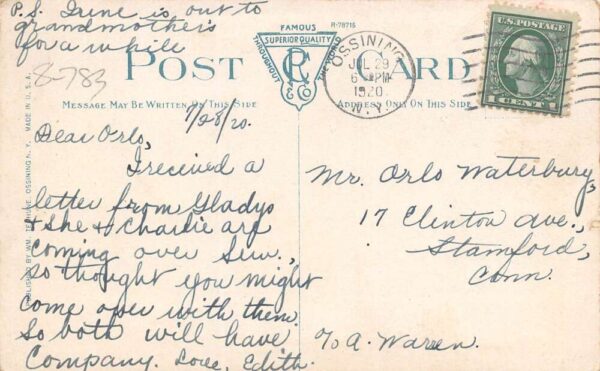 P.S. Irene is out to
grandmother's
for a while
8-783
FAMOUS
SUPERIOR QUALITY
THROUGHOUT THE WORLD
R-78715
POST CARD
MESSAGE MAY BE WRITTEN ON THIS SIDE
ADDRESS ONLY ON THIS SIDE
OSSINING
JUL 29
6 PM
1920
N.Y.
U.S. POSTAGE
1 CENT 1
7/28/20.
Dear Orlo,
I received a
letter from Gladys
& she & Charlie are
coming over Sun.,
so thought you might
come over with them.
So both will have
Company. Love, Edith.
Mr. Orlo Waterbury,
17 Clinton Ave.,
Stamford,
Conn.
c/o A. Warren.
OSSINING N.Y. MADE IN U.S.A.
PUBLISHED BY WM.